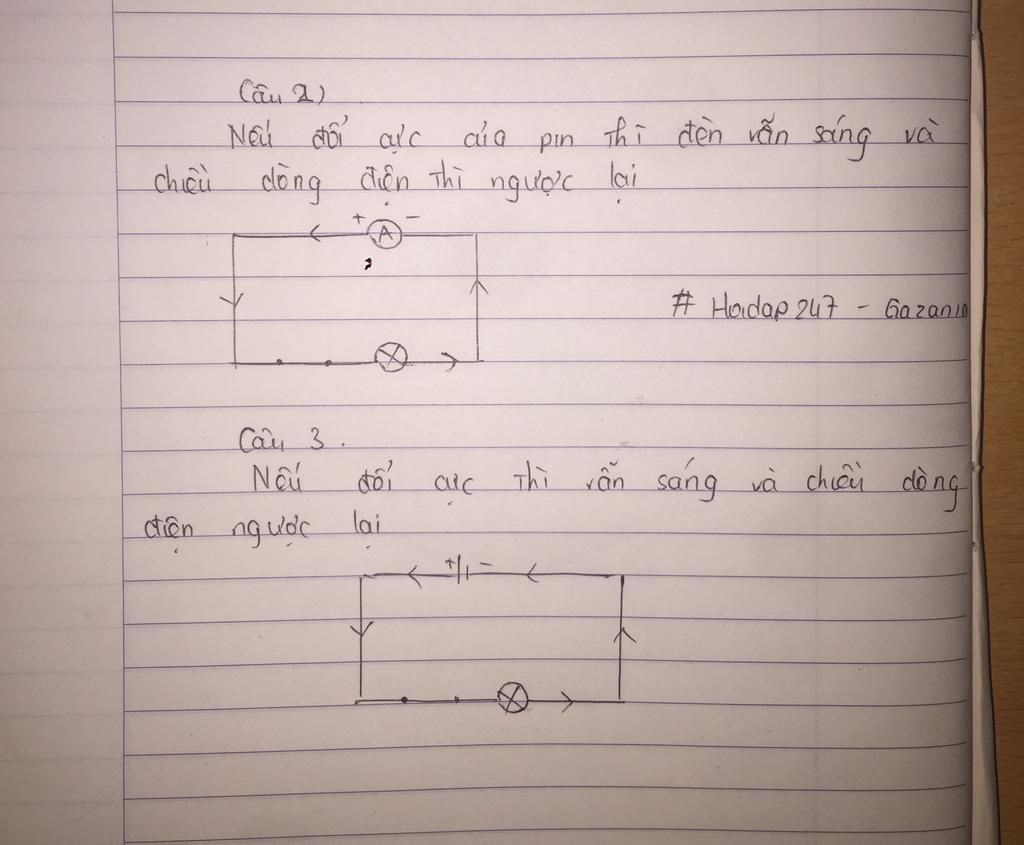 Câu 2)
Nếu đổi cực của pin thì đèn vẫn sáng và
chiều dòng điện thì ngược lại
+ A -
# Hoidap247 - Gazania
Câu 3.
Nếu đổi cực thì vẫn sáng và chiều dòng
điện ngược lại
+ -